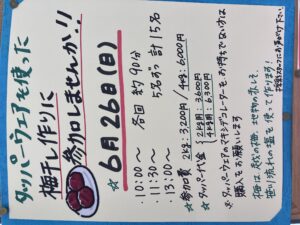 タッパーウェアを使った
梅干し作りに
参加しませんか!!
☆6月26日(日)
・10:00〜 各回 約90分
・11:30〜 5名ずつ 計15名
・13:00〜
☆参加費 2kg:3200円/4kg:6000円
☆タッパー代金 2kg用:3,600円
4kg用:6,300円
※タッパーウェアのマキシデコレーターをお持ちでない方は
購入をお願いします
梅は、越の梅、地物の赤しそ、
笹川流れの塩を使って作ります。